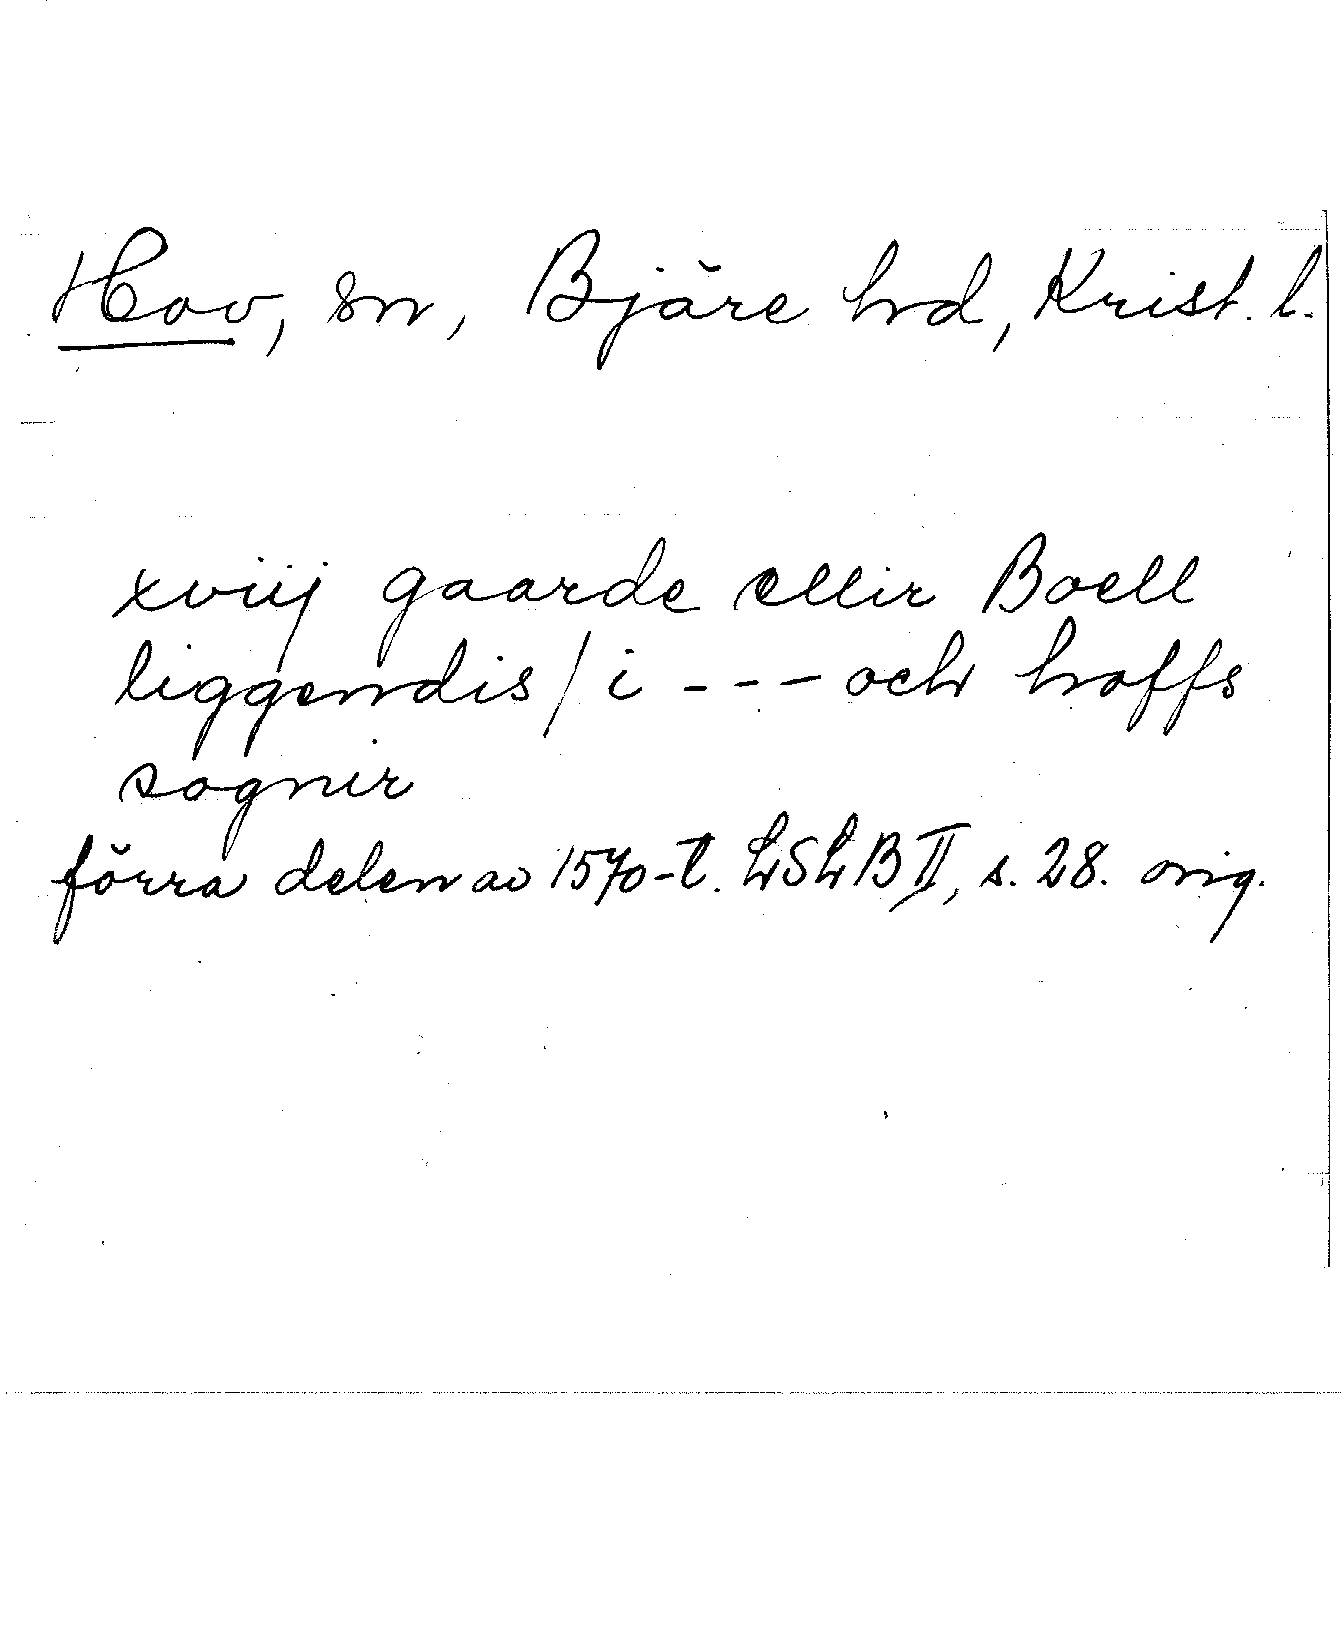 Hov, sn, Bjäre hd, Krist. l.
xviij gaarde ellir Boell
liggendis/i --- och hoffs
sognir
förra delen av 1570-t. LSLB II, s. 28. orig.